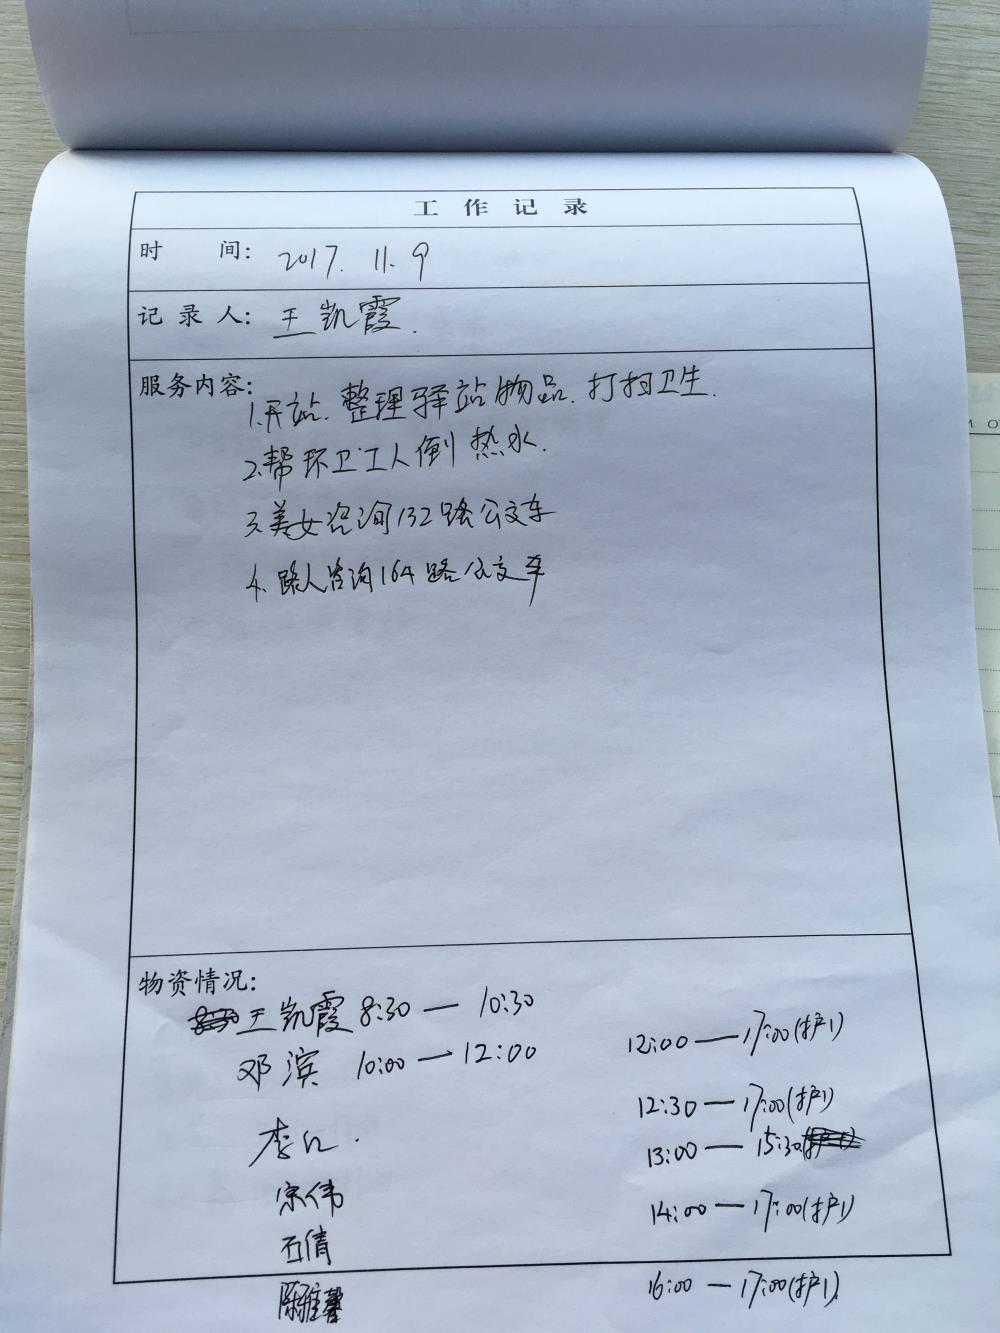 工作记录
时 间: 2017. 11. 9
记录人: 王凯霞.
服务内容:
1.开站. 整理驿站物品. 打扫卫生.
2.帮环卫工人倒热水.
3.美女咨询132路公交车
4.路人咨询164路公交车
物资情况:
王凯霞 8:30 — 10:30
邓滨 10:00 — 12:00 12:00 — 17:00(护1)
李仁. 12:30 — 17:00(护1)
宋伟 13:00 — 15:30
石倩 14:00 — 17:00(护1)
陈雅馨 16:00 — 17:00(护1)